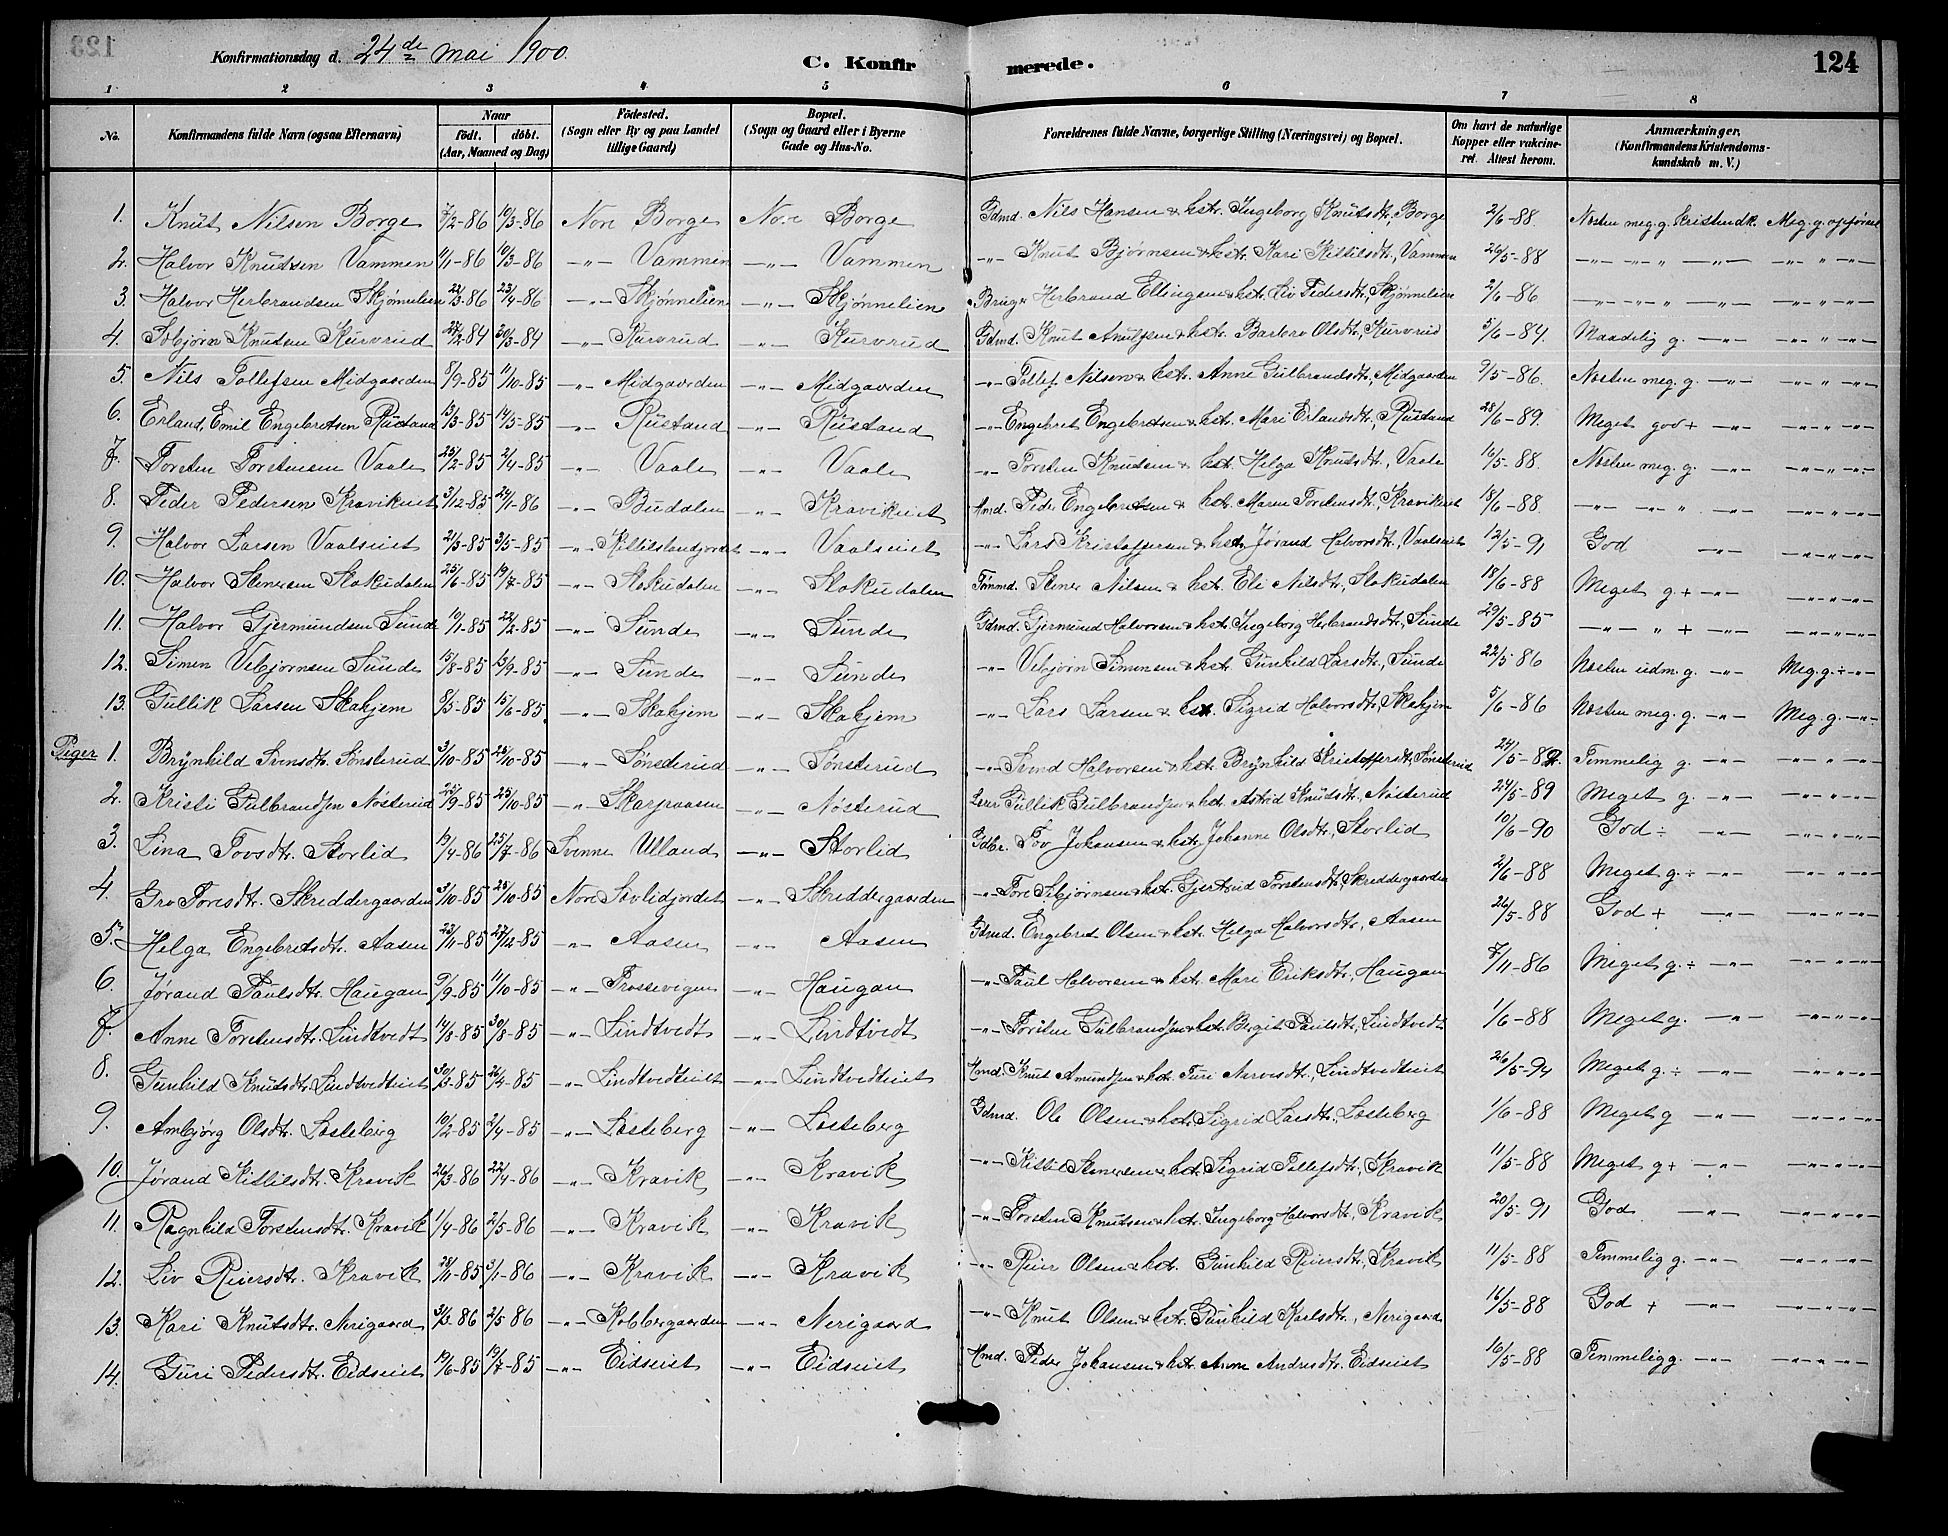 Konfirmationsdag d. 24de mai 1900. C. Konfirmerede. 124
1 2 3 4 5 6 7 8
No. Konfirmandens fulde Navn (ogsaa Efternavn) Naar født. døbt. (Aar, Maaned og Dag) Födested. (Sogn eller By og paa Landet tillige Gaard) Bopæl. (Sogn og Gaard eller i Byerne Gade og Hus-No. Forældrenes fulde Navne, borgerlige Stilling (Næringsvei) og Bopæl. Om havt de naturlige Kopper eller vakcineret. Attest herom. Anmærkninger. (Konfirmandens Kristendomskundskab m. V.)
1. Knut Nilsen Borge 7/2-86 19/3-86 Nore Borge Nore Borge Gdmd. Nils Hansen & hstr. Ingeborg Knutsdtr., Borge 2/6-88. Næsten meg. g. kristendk. Meg. g. opførsel
2. Halvor Knutsen Vammen 11/1-86 19/3-86 -"- Vammen -"- Vammen -"- Knut Bjørnsen & hstr. Kari Kittilsdtr., Vammen 26/5-88 -"- -"- " -"- -"- " -"-
3. Halvor Herbrandsen Skjønnelien 22/3-86 23/4-86 -"- Skjønnelien -"- Skjønnelien Bruger Herbrand Ellingsen & hstr. Liv Pedersdtr., Skjønnelien 2/6-86 -"- -"- " -"- -"- " -"-
4. Asbjørn Knutsen Kurvrud 27/2-84 30/3-84 -"- Kurvrud -"- Kurvrud Gdmd. Knut Anulfsen & hstr. Barbro Olsdtr., Kurvrud 5/6-84. Maadelig g. -"- -"- " -"-
5. Nils Tollefsen Midgaarden 8/9-85 11/10-85 -"- Midgaarden -"- Midgaarden -"- Tollef Nilsen & hstr. Anne Gulbrandsdtr., Midgaarden 9/5-86. Næsten meg. g. -"- -"- " -"-
6. Erland Emil Engebretsen Rustand 13/3-85 14/5-85 -"- Rustand -"- Rustand -"- Engebret Engebretsen & hstr. Mari Erlandsdtr., Rustand 28/6-89. Meget god + -"- -"- " -"-
7. Torsten Torstensen Vaale 25/2-85 2/4-85 -"- Vaale -"- Vaale -"- Torsten Knudsen & hst. Helga Knudsdtr., Vaale 16/5-88. Næsten meg. g. -"- -"- " -"-
8. Peder Pedersen Kravikeiet 3/12-85 24/1-86 -"- Budalen -"- Kravikeiet Hmd. Peder Engebretsen & hst. Maren Torstensdtr., Kravikeiet 18/6-88. -"- -"- " -"- -"- " -"-
9. Halvor Larsen Vaalseiet 21/3-85 3/5-85 -"- Kittilslandjordet -"- Vaalseiet -"- Lars Kristoffersen & hstr. Jørand Halvorsdtr., Vaalseiet 12/5-91 God -"- -"- " -"-
10. Halvor Stenersen Stokudalen 25/6-85 19/7-85 -"- Stokudalen -"- Stokudalen Tømmd. Stener Nilsen & hst. Eli Nilsdtr., Stokudalen 18/6-88 Meget g + -"- -"- " -"-
11. Halvor Gjermundsen Sunde 10/1-85 22/2-85 -"- Sunde -"- Sunde Gdmd. Gjermund Halvorsen & hstr. Ingeborg Herbrandsdtr., Sunde 29/5-85 -"- " + -"- -"- " -"-
12. Simen Vebjørnsen Sunde 15/8-85 13/9-85 -"- Sunde -"- Sunde -"- Vebjørn Simensen & hstr. Gunhild Larsdtr., Sunde 22/5-86 Næsten udm. g. -"- Meg. g. ÷ -"-
13. Gullik Larsen Skahjem 8/5-85 15/6-85 -"- Skahjem -"- Skahjem -"- Lars Larsen & hst. Sigrid Halvorsdtr., Skahjem 5/6-86 Næsten meg. g. -"- Meg. g. -"-
Piger 1. Brynhild Svensdtr. Sønsterud 3/10-85 25/10-85 -"- Sønsterud -"- Sønsterud -"- Svend Halvorsen & hst. Brynhild Kristoffersdtr., Sønsterud 24/5-89. Temmelig g. -"- -"- " -"-
2. Kristi Gulbrandsen Nøsterud 25/9-85 25/10-85 -"- Skarpaasen -"- Nøsterud Gullik Gulbrandsen & hst. Astrid Knudsdtr., Nøsterud 24/5-89 Meget g. -"- -"- " -"-
3. Lina Tovsdtr. Storlid 19/4-86 25/7-86 Svenne Ulland -"- Storlid Gdbr. Tov Johansen & hst. Johanne Olsdtr., Storlid 10/6-90 God ÷ -"- -"- " -"-
4. Gro Toresdtr. Skreddergaarden 3/10-85 25/10-85 Nore Sevlidjordet -"- Skreddergaarden -"- Tore Asbjørnsen & hst. Gjertrud Torstensdtr., Skreddergaarden 2/6-88 Meget g ÷ -"- -"- " -"-
5. Helga Engebretsdtr. Aasen 23/11-85 27/12-85 -"- Aasen -"- Aasen Gdmd. Engebret Olsen & hst. Helga Halvorsdtr., Aasen 26/5-88 God + -"- -"- " -"-
6. Jørand Paulsdtr. Haugan 9/9-85 11/10-85 -"- Trossevigen -"- Haugan -"- Paul Halvorsen & hst. Mari Eriksdtr., Haugan 7/11-86 Meget g. ÷ -"- -"- " -"-
7. Anne Torstensdtr. Lindtvedt 14/8-85 30/8-85 -"- Lindtvedt -"- Lindtvedt -"- Torsten Gulbrandsen & hst. Bergit Paulsdtr., Lindtvedt 1/6-88 Meget g. -"- -"- " -"-
8. Gunhild Knutsdtr. Lindtvedteiet 30/3-85 26/4-85 -"- Lindtvedteiet -"- Lindtvedteiet Hmd. Knut Amundsen & hst. Turi Nerisdtr., Lindtvedteiet 26/5-94 Meget g. ÷ -"- -"- " -"-
9. Ambjørg Olsdtr. Losteberg 10/2-85 2/4-85 -"- Losteberg -"- Losteberg Gdmd. Ole Olsen & hst. Sigrid Larsdtr., Losteberg 1/6-88 Meget g -"- -"- " -"-
10. Jørand Kittilsdtr. Kravik 26/3-86 22/4-86 -"- Kravik -"- Kravik -"- Kittil Stenersen & hst. Sigrid Tollefsdtr., Kravik 11/5-88 Meget g + -"- -"- " -"-
11. Ragnhild Torstensdtr. Kravik 1/4-86 2/5-86 -"- Kravik -"- Kravik -"- Torsten Knutsen & hst. Ingeborg Halvorsdtr., Kravik 20/5-91 God -"- -"- " -"-
12. Liv Reiersdtr. Kravik 28/11-85 3/1-86 -"- Kravik -"- Kravik -"- Reier Olsen & hst. Gunhild Reiersdtr., Kravik 11/5-88 Temmelig g. -"- -"- " -"-
13. Kari Knutsdtr. Nerigaard 31/3-86 2/5-86 -"- Kobbergaarden -"- Nerigaard -"- Knut Olsen & hst. Gunhild Karlsdtr., Nerigaard 16/5-88 God + -"- -"- " -"-
14. Guri Pedersdtr. Eidseiet 19/6-85 19/7-85 -"- Eidseiet -"- Eidseiet Hmd. Peder Johansen & hst. Anne Andersdtr. Eidseiet 16/5-88 Temmelig g. -"- -"- " -"-